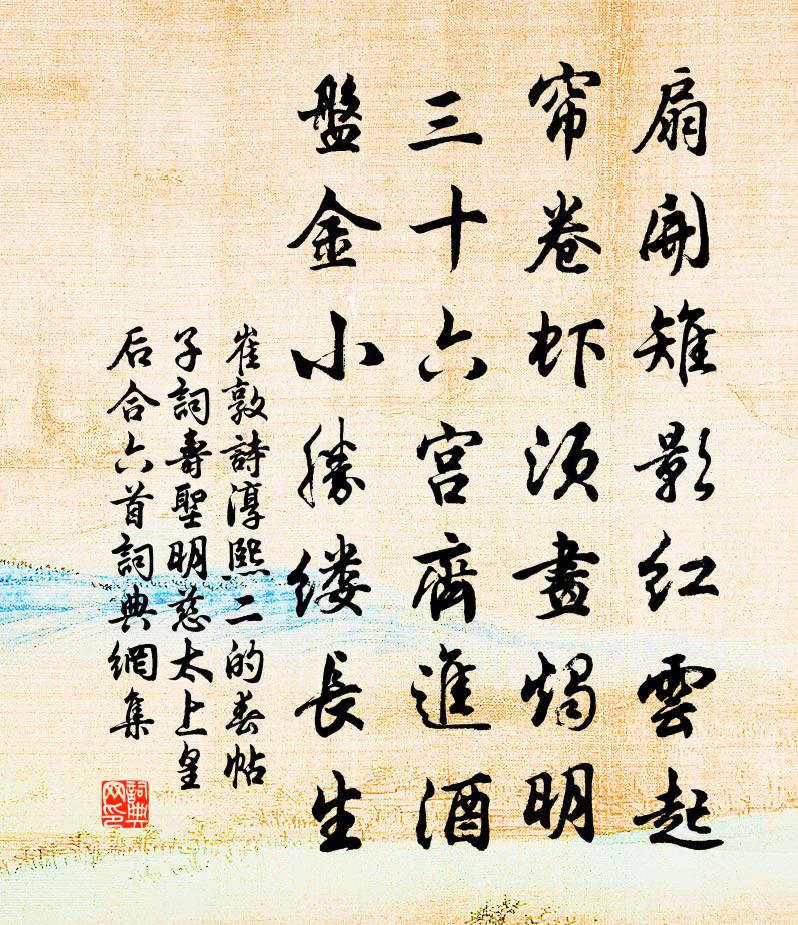 扇開雉影紅雲起
帘卷虾须畫燭明
三十六宫齊進酒
盤金小勝缕長生
崔敦詩淳熙二的春帖
子詞壽聖明慈太上皇
后合六首詞典網集
詞典网印